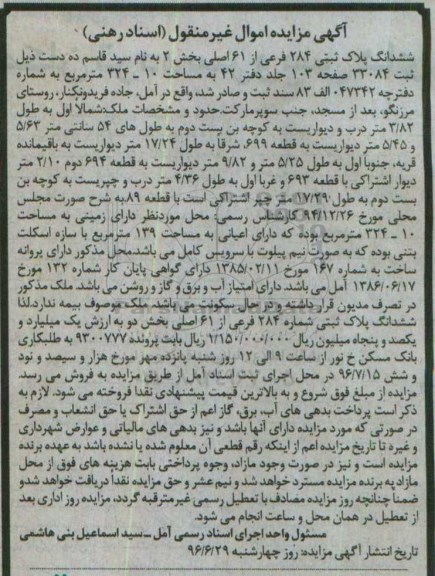 آگهی مزایده اموال غیرمنقول (اسناد رهنی)
ششدانگ پلاک ثبتی ۲۸۴ فرعی از ۶۱ اصلی بخش ۲ به نام سید قاسم ده دست ذیل
ثبت ۳۳۰۸۴ صفحه ۱۰۳ جلد دفتر ۴۲ به مساحت ۱۰ - ۳۲۴ مترمربع به شماره
دفترچه ۰۴۷۳۴۲ الف ۸۳ سند ثبت و صادر شد، واقع در آمل، جاده فریدونکنار، روستای
مرزنگو، بعد از مسجد، جنب سوپرمارکت.حدود و مشخصات ملک:شمالا اول به طول
۳/۸۲ متر درب و دیواریست به کوچه بن بست دوم به طول های ۵۴ سانتی متر ۵/۶۳
و ۵/۴۵ متر دیواریست به قطعه ۶۹۹، شرقا به طول ۱۷/۲۴ متر دیواریست به باقیمانده
قریه، جنوبا اول به طول ۵/۲۵ متر و ۹/۸۲ متر دیواریست به قطعه ۶۹۴ دوم ۲/۱۰ متر
دیوار اشتراکی با قطعه ۶۹۳ و غربا اول به طول ۴/۳۶ متر درب و چپریست به کوچه بن
بست دوم به طول ۱۷/۲۹ متر چپر اشتراکی است با قطعه ۸۹.به شرح صورت مجلس
محلی مورخ ۹۴/۱۲/۲۶ کارشناس رسمی: محل موردنظر دارای زمینی به مساحت
۱۰ - ۳۲۴ مترمربع بوده که دارای اعیانی به مساحت ۱۳۹ مترمربع با سازه اسکلت
بتنی بوده که به صورت نیم پیلوت با سرویس کامل می باشد.محل مذکور دارای پروانه
ساخت به شماره ۱۶۷ مورخ ۱۳۸۵/۰۲/۱۱ دارای گواهی پایان کار شماره ۱۳۲ مورخ
۱۳۸۶/۰۶/۱۷ آمل می باشد. دارای امتیاز آب و برق و گاز و روشن می باشد. ملک مذکور
در تصرف مدیون قرار داشته و در حال سکونت می باشد. ملک موصوف بیمه ندارد.لذا
ششدانگ پلاک ثبتی شماره ۲۸۴ فرعی از ۶۱ اصلی بخش دو به ارزش یک میلیارد و
یکصد و پنجاه میلیون ریال ۱/۱۵۰/۰۰۰/۰۰۰ ریال بابت پرونده ۹۳۰۰۷۷۷ به طلبکاری
بانک مسکن خ نور از ساعت ۹ الی ۱۲ روز شنبه پانزده مهر مورخ هزار و سیصد و نود
و شش ۹۶/۷/۱۵ در محل اجرای ثبت اسناد آمل از طریق مزایده به فروش می رسد.
مزایده از مبلغ فوق شروع و به بالاترین قیمت پیشنهادی نقدا فروخته می شود. لازم به
ذکر است پرداخت بدهی های آب، برق، گاز اعم از حق اشتراک یا حق انشعاب و مصرف
در صورتی که مورد مزایده دارای آنها باشد و نیز بدهی های مالیاتی و عوارض شهرداری
و غیره تا تاریخ مزایده اعم از اینکه رقم قطعی آن معلوم شده یا نشده باشد به عهده برنده
مزایده است و نیز در صورت وجود مازاد، وجوه پرداختی بابت هزینه های فوق از محل
مازاد به برنده مزایده مسترد خواهد شد و نیم عشر و حق مزایده نقدا دریافت خواهد شدو
ضمنا چنانچه روز مزایده مصادف با تعطیل رسمی غیرمترقبه گردد، مزایده روز اداری بعد
از تعطیل در همان محل و ساعت انجام می شود.
مسئول واحد اجرای اسناد رسمی آمل - سید اسماعیل بنی هاشمی
تاریخ انتشار آگهی مزایده: روز چهارشنبه ۹۶/۶/۲۹